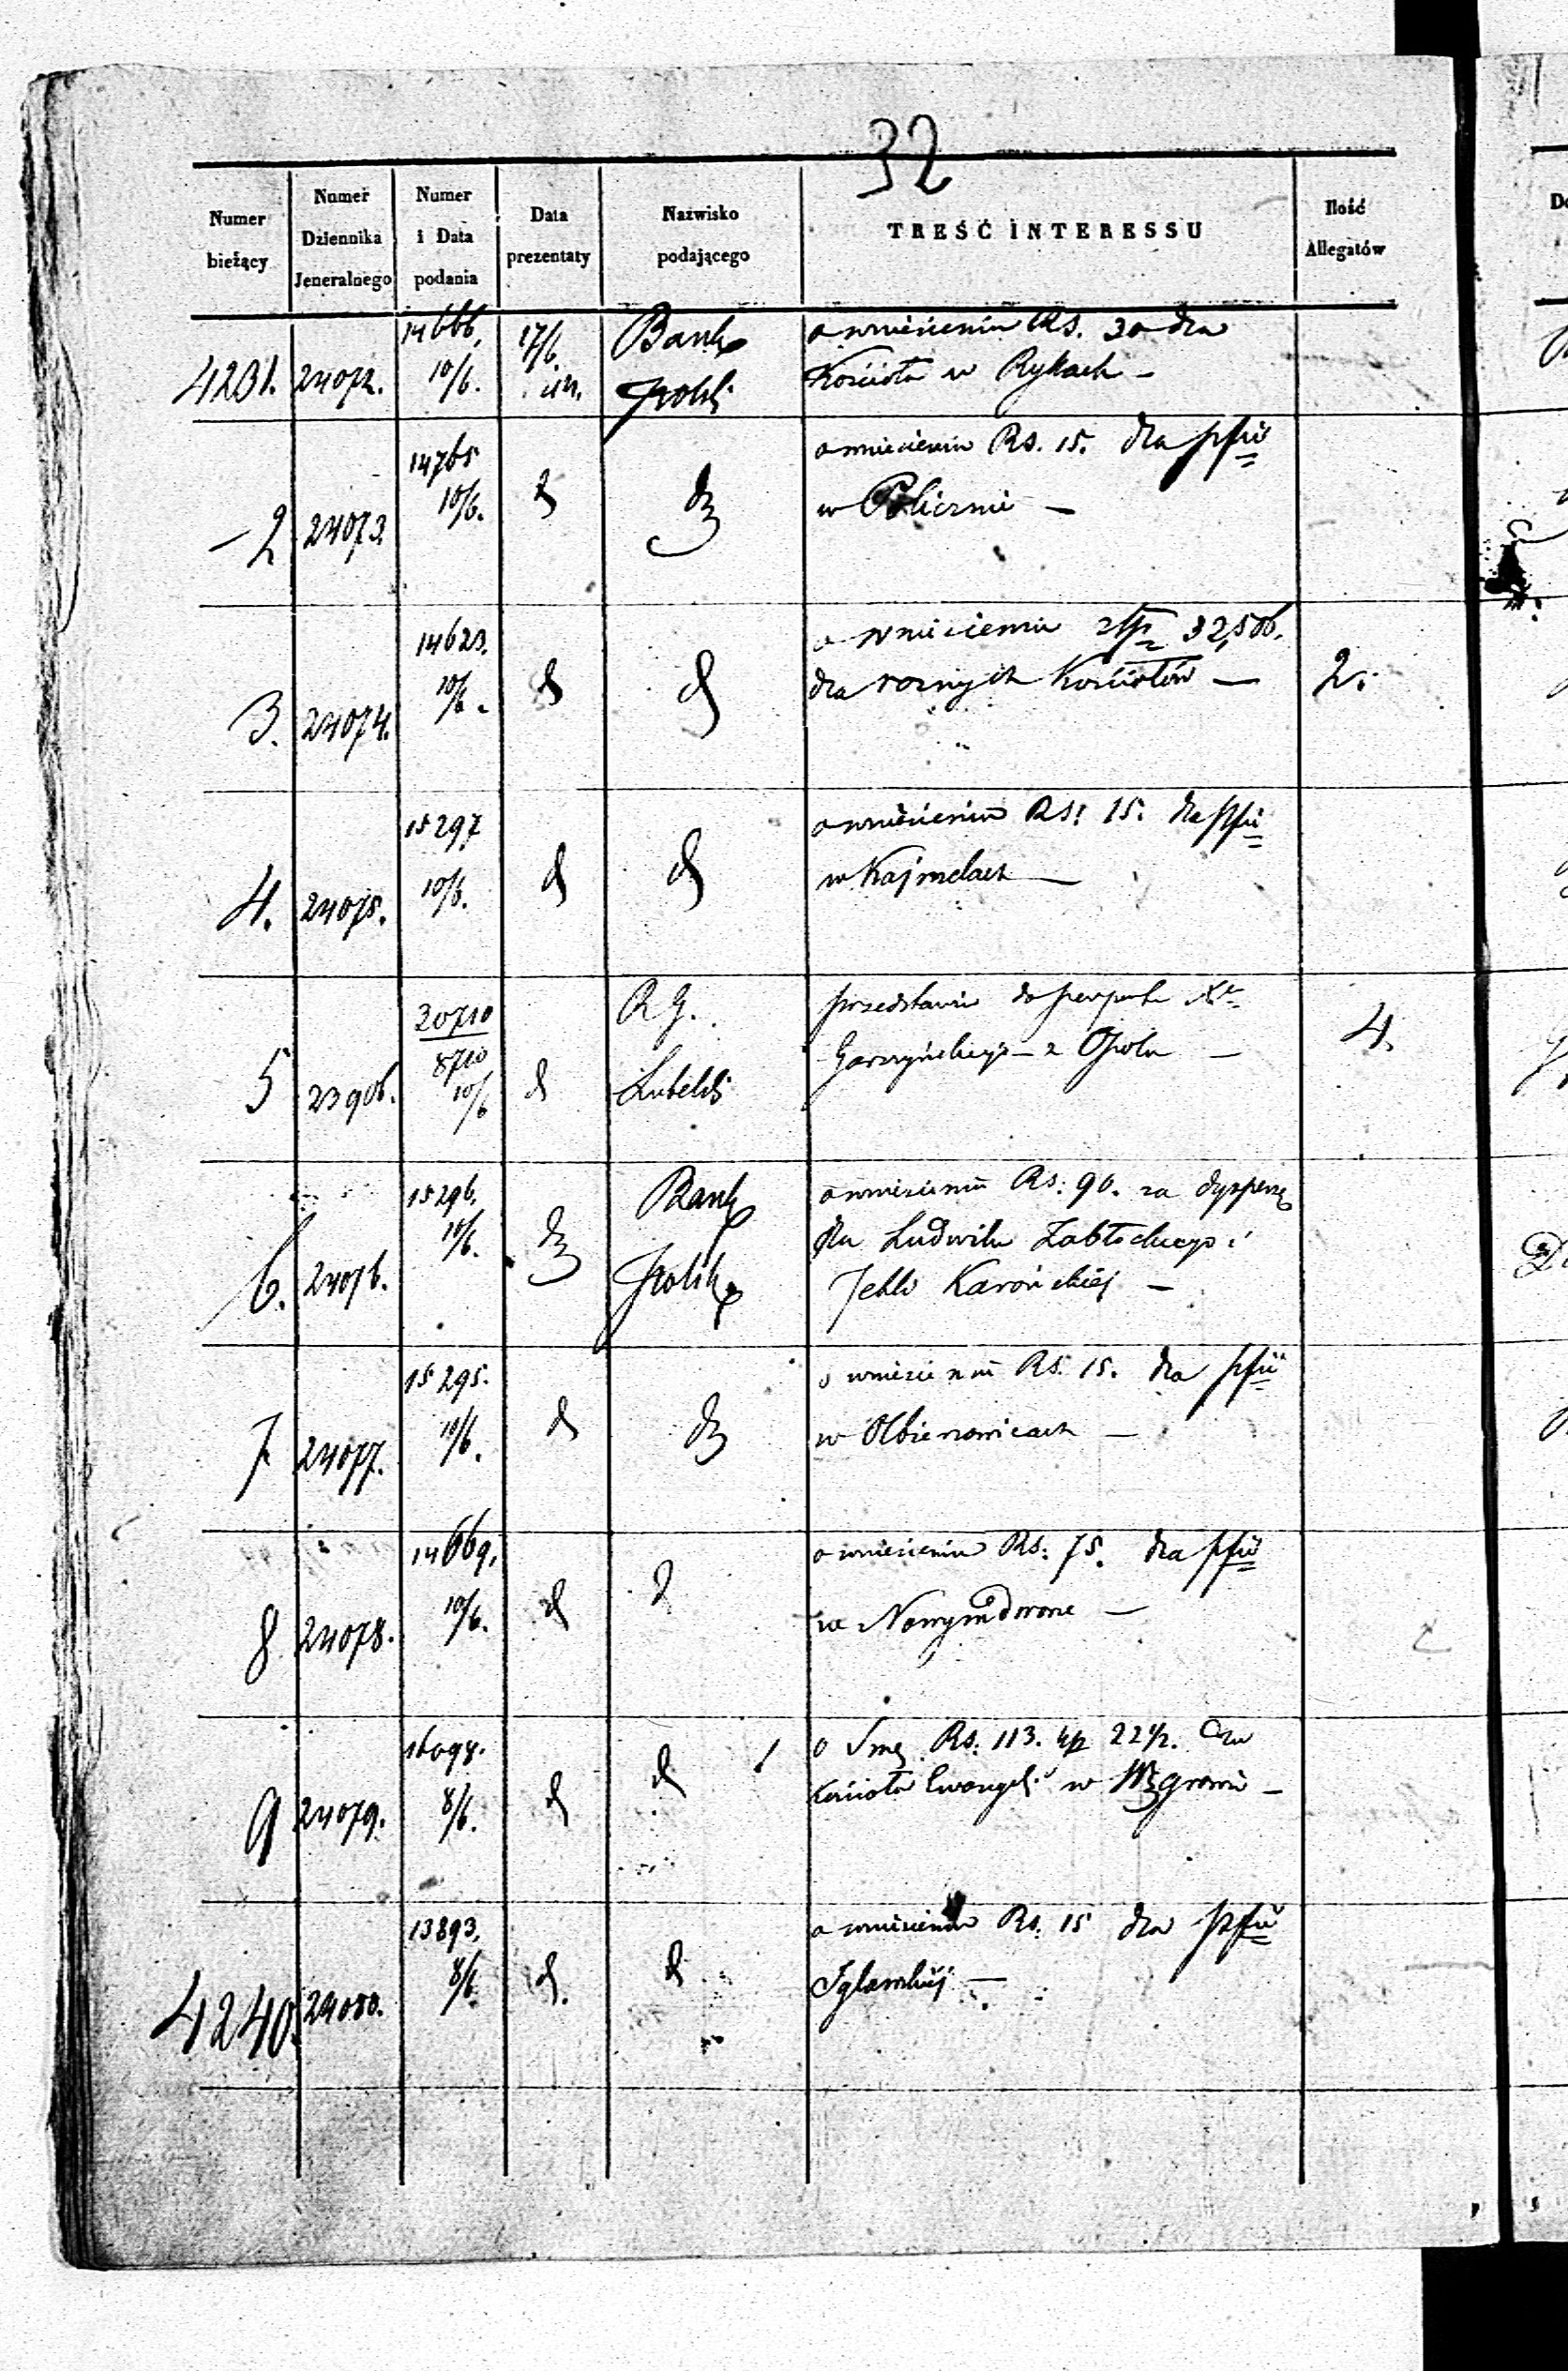 32
Numer bieżący
Numer Dziennika Jeneralnego
Numer i Data podania
Data prezentaty
Nazwisko podającego
TREŚĆ INTERESSU
Ilość Allegatów
4231. 24072. 14666. 10/6. 17/6 Bank Polski o wniesieniu Rs. 30 dla
Kościoła w Rykach –
2 24073. 14765 10/6. d d o wniesieniu Rs. 15. dla
w Policznie –
3. 24074. 14623. 10/6. d d o wniesieniu złp 32,506.
dla roznych Kościołów – 2.
4. 24075. 15297 10/6. d d o wniesieniu Rs: 15. dla
w Kajmelach –
5 23906. 20710 8710 10/6 d R G. Lubelski przedstawia do
z Opola – 4.
6. 24076. 15296. 10/6. d Bank Polski o wniesieniu Rs: 90. za dyspensę
dla Ludwika Zabłockiego i
Tekli Karońskiej –
7 24077. 15295. 10/6. d d o wniesieniu Rs. 15. dla
w Olbierzowicach –
8 24078. 14669. 10/6. d d o wniesieniu Rs: 75. dla
w Nowymdworze –
9 24079. 16098. 8/6. d d o Rs: 113. kp 22 1/2.
Kościoła Ewangeli w Węgrowie –
4240. 24080. 13893. 8/6 d. d o wniesieniu Rs. 15 dla